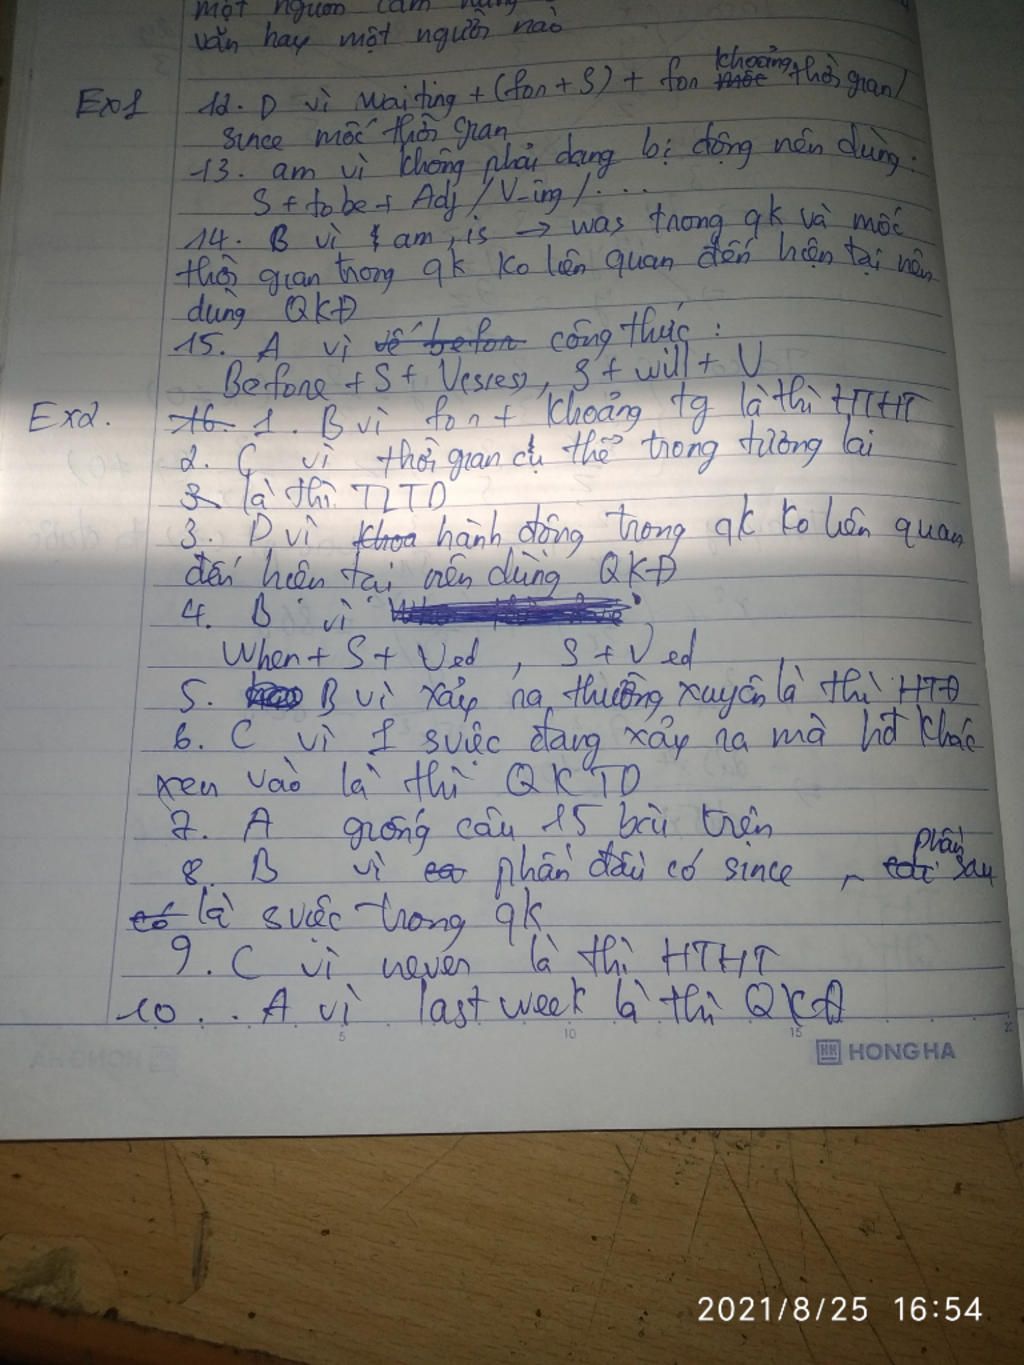 một người cảm
văn hay một người nào
Ex1 12. D vì waiting + (for + S) + for khoảng thời gian /
since mốc thời gian
13. am vì không phải dạng bị động nên dùng :
S + to be + Adj / V-ing / ...
14. B vì am, is → was trong qk và mốc
thời gian trong qk ko liên quan đến hiện tại nên
dùng QKĐ
15. A vì vế befor công thức :
Before + S + V(s/es), S + will + V
Ex2. 16. 1. B vì for + khoảng tg là thì HTHT
2. C vì thời gian cụ thể trong tương lai
3 là thì TLTD
3. D vì khoa hành động trong qk ko liên quan
đến hiện tại nên dùng QKĐ
4. B vì
When + S + Ved , S + Ved
5. B vì xảy ra thường xuyên là thì HTĐ
6. C vì 1 sviệc đang xảy ra mà hđ khác
xen vào là thì QKTD
7. A giống câu 15 bài trên
8. B vì phần đầu có since , phần sau
có là sviệc trong qk
9. C vì never là thì HTHT
10... A vì last week là thì QKĐ
5 10 15 20
HONG HA
2021/8/25 16:54